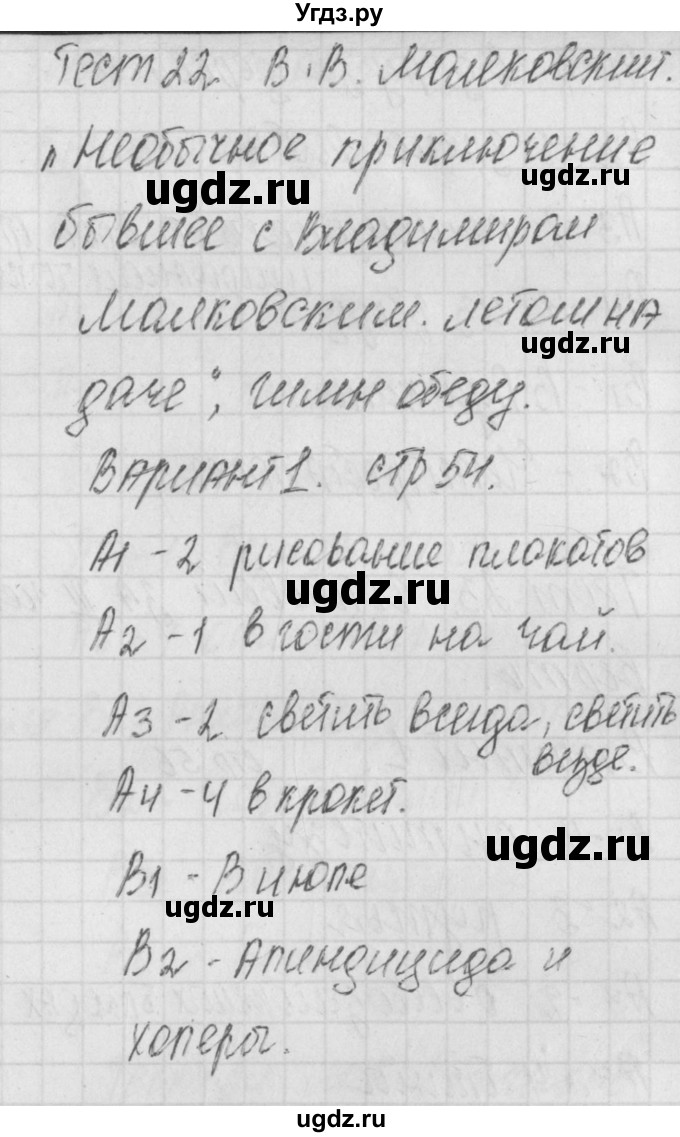 Угдз.ру
Тест 22 В.В. Маяковский.
"Необычное приключение
ugdz.ru ugdz.ru
бывшее с Владимиром
Маяковским. летом на
ugdz.ru ugdz.ru
даче", гимн обеду.
Вариант 1. стр 54.
А1 - 2 рисование плакатов
ugdz.ru
А2 - 1 в гости на чай.
А3 - 2 светить всегда, светить
везде.
А4 - 4 в крокет.
ugdz.ru
В1 - В июле
ugdz.ru
В2 - Апендицида и
холеры.
ugdz.ru